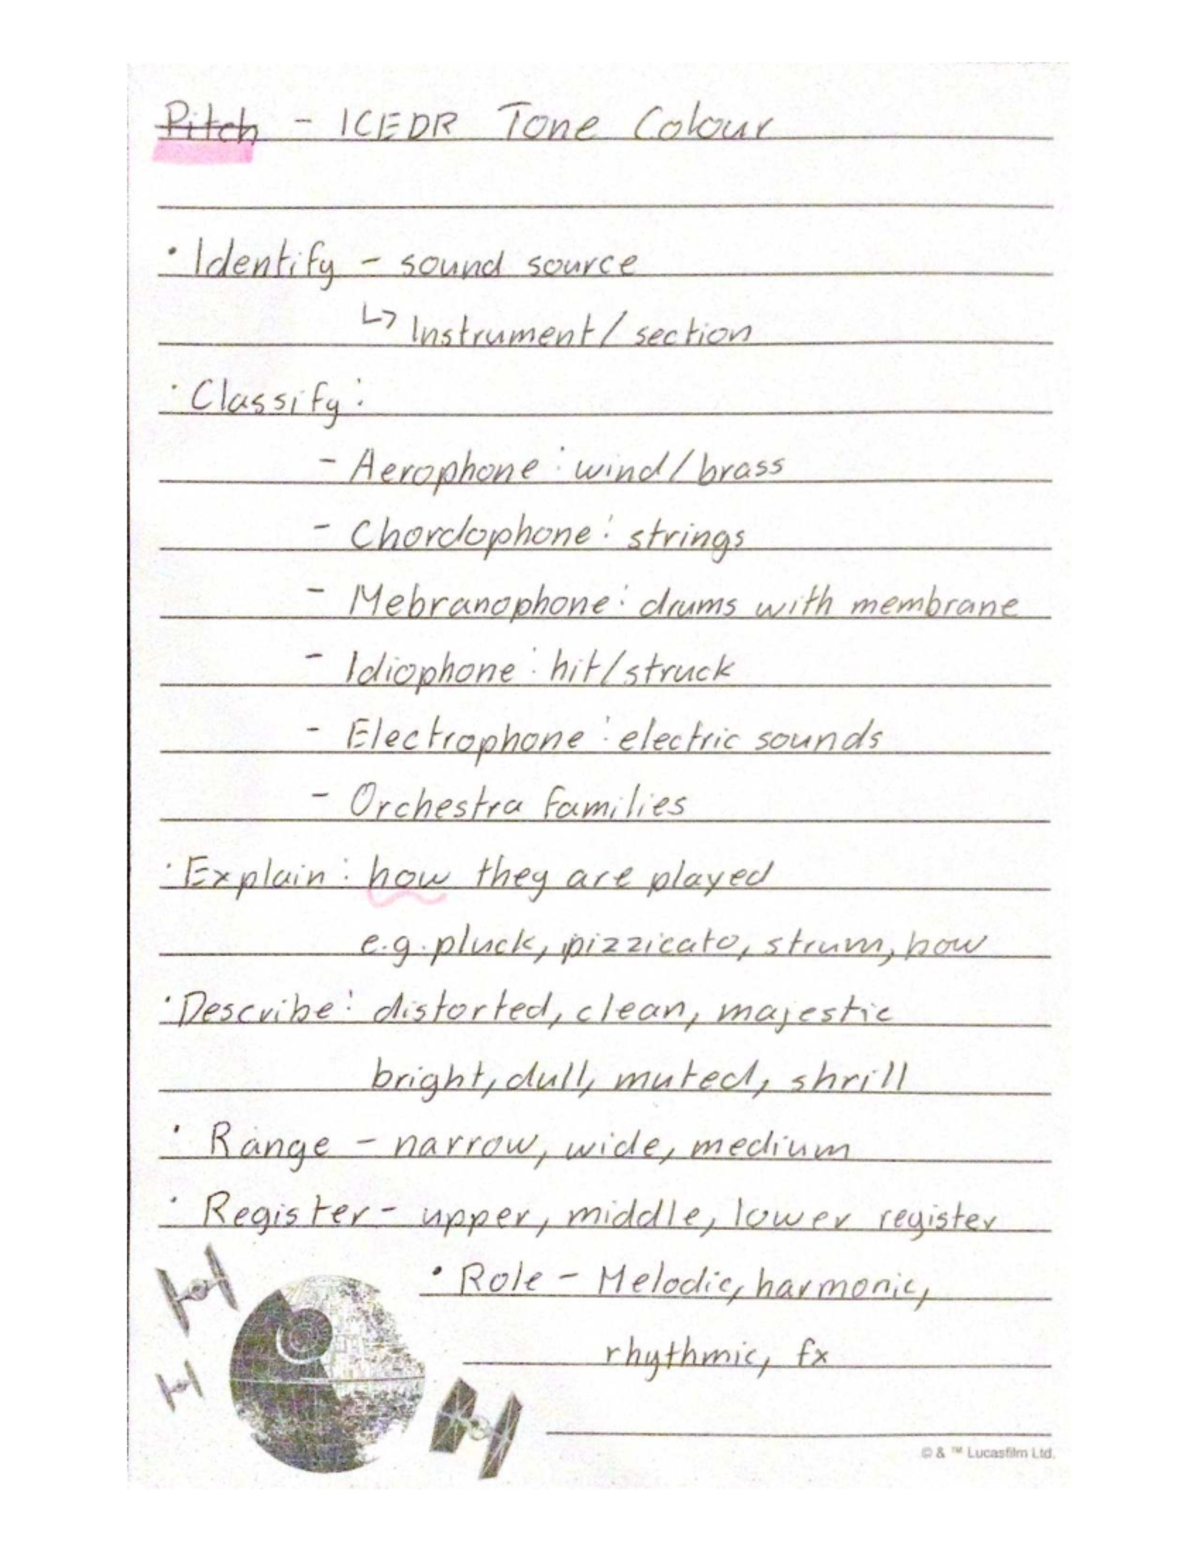 Pitch - ICEDR Tone Colour
• Identify - sound source
↳ Instrument/section
• Classify:
- Aerophone: wind/brass
- Chordophone: strings
- Mebranophone: drums with membrane
- Idiophone: hit/struck
- Electrophone: electric sounds
- Orchestra families
• Explain: how they are played
e.g. pluck, pizzicato, strum, bow
• Describe: distorted, clean, majestic
bright, dull, muted, shrill
• Range - narrow, wide, medium
• Register - upper, middle, lower register
• Role - Melodic, harmonic,
rhythmic, fx
© & ™ Lucasfilm Ltd.